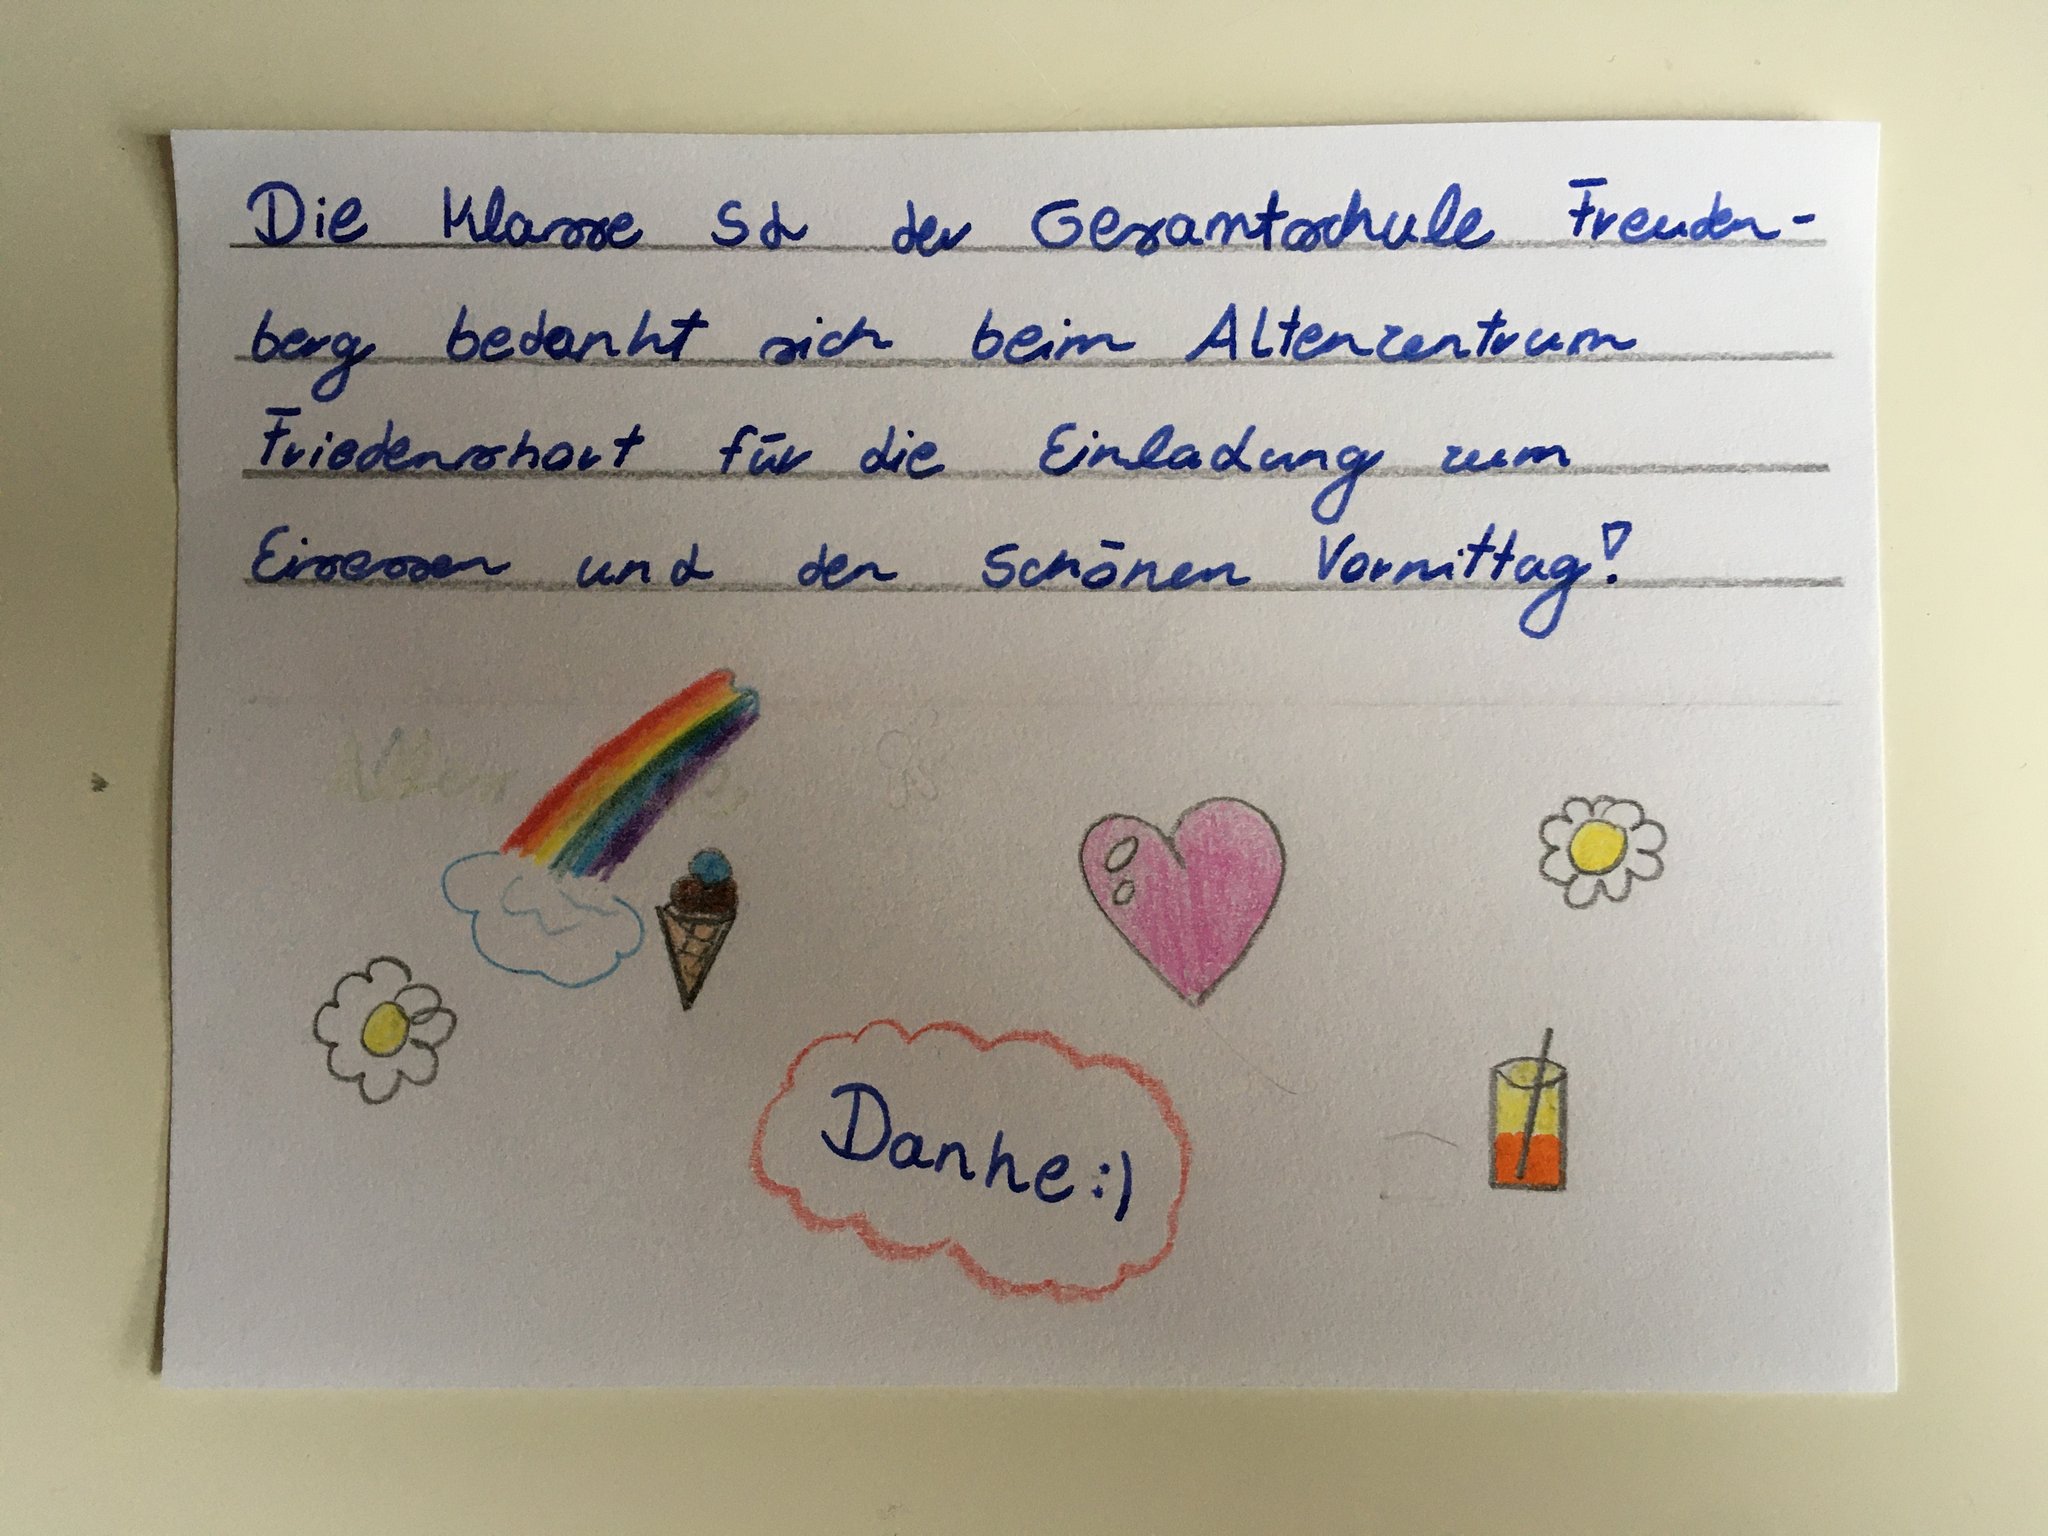 Die Klasse 5d der Gesamtschule Freuden-
berg bedankt sich beim Altenzentrum
Friedenshort für die Einladung zum
Eisessen und den schönen Vormittag!
Danke:)